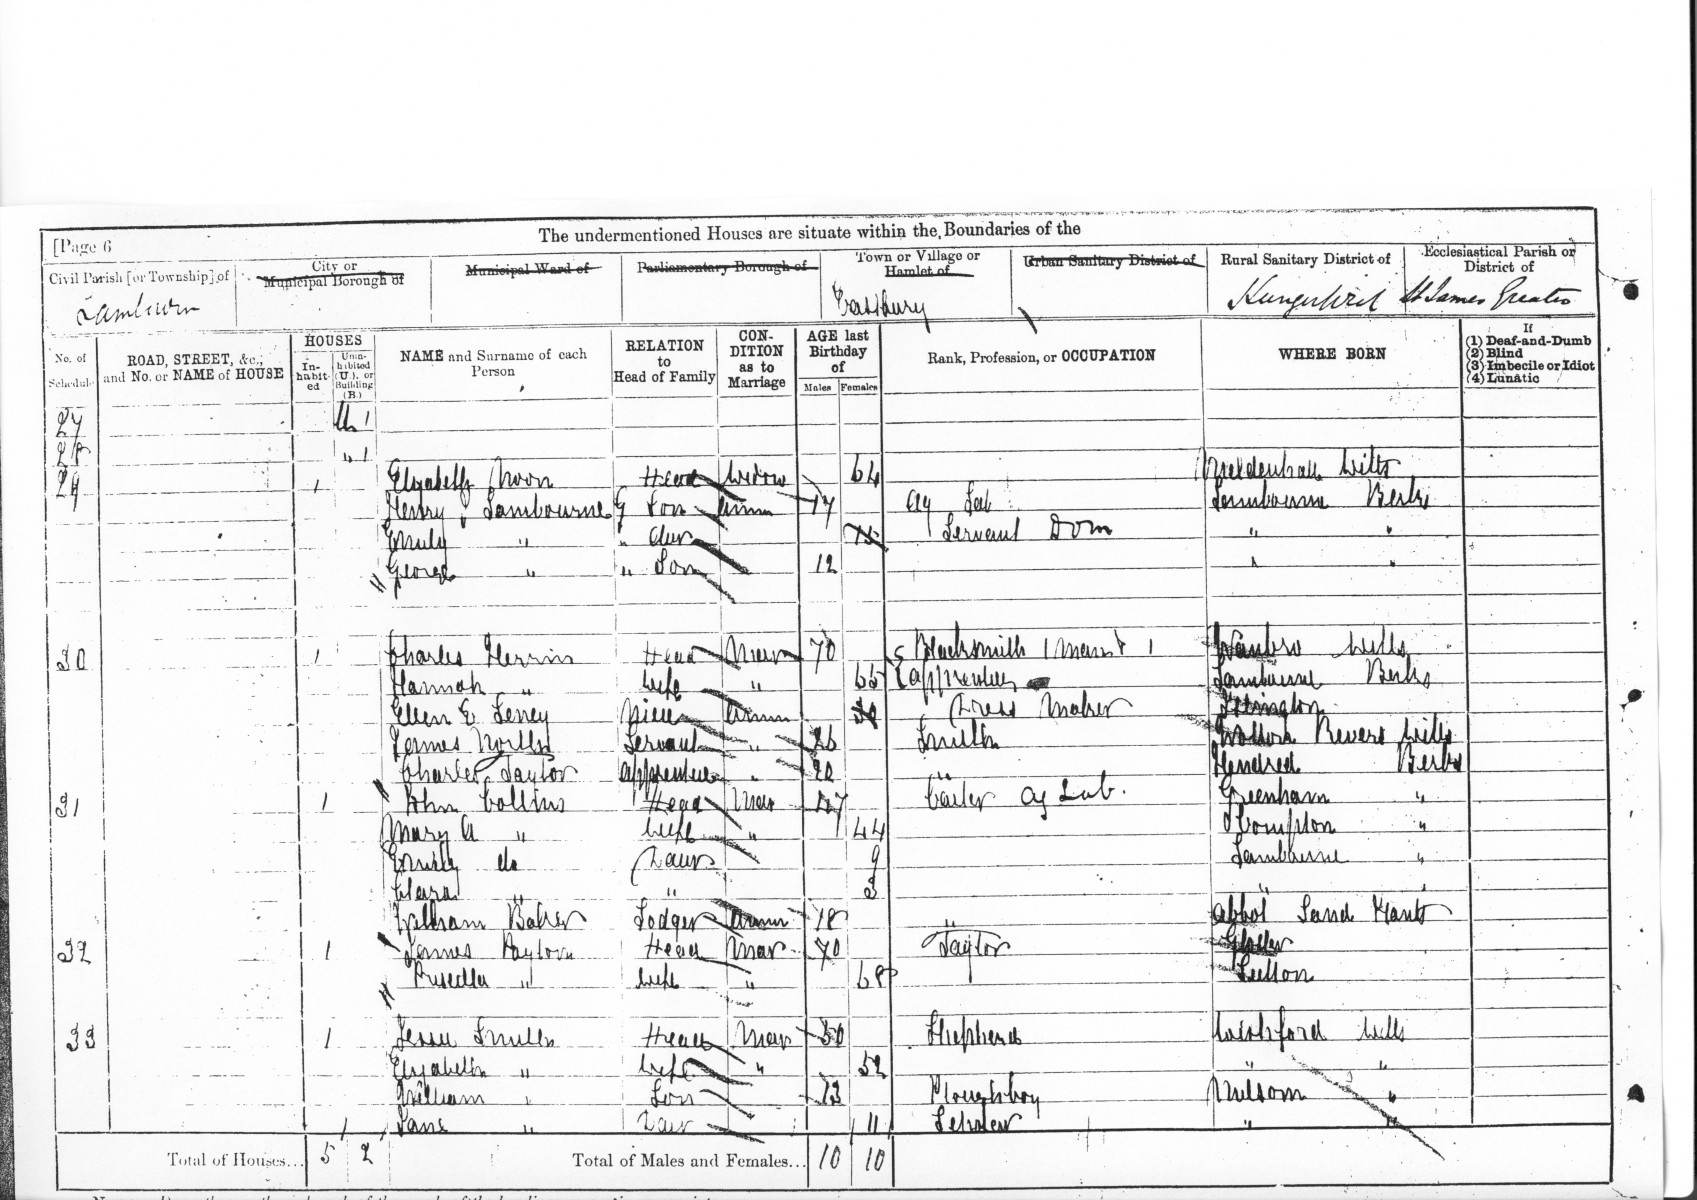 [Page 6
The undermentioned Houses are situate within the Boundaries of the
Civil Parish [or Township] of
City or Municipal Borough of
Municipal Ward of
Parliamentary Borough of
Town or Village or Hamlet of
Urban Sanitary District of
Rural Sanitary District of
Ecclesiastical Parish or District of
Lambourn Eastbury Hungerford St James Greater
No. of Schedule
ROAD, STREET, &c., and No. or NAME of HOUSE
HOUSES
In-habit-ed
Unin-habited (U.), or Building (B.)
NAME and Surname of each Person
RELATION to Head of Family
CON-DITION as to Marriage
AGE last Birthday of
Males Females
Rank, Profession, or OCCUPATION
WHERE BORN
If
(1) Deaf-and-Dumb
(2) Blind
(3) Imbecile or Idiot
(4) Lunatic
27 U 1
28 " 1
29 1 Elizabeth Noon Head Widow 64 Mildenhall Wilts
Henry Lambourne G Son Unm 17 Ag Lab Lambourne Berks
Emily " " Daur 15 Servant Dom " "
George " " Son 12 " "
30 1 Charles Herrin Head Mar 70 Blacksmith 1 Man & 1 Wanbro Wilts
Hannah " Wife " 65 apprentice Lambourne Berks
Ellen E Leney Niece Unm Dress Maker
James North Servant " 26 Smith Wotton Rivers Wilts
Charles Taylor Apprentice " 20 " Hendred Berks
31 1 John Collins Head Mar 47 Carter Ag Lab. Greenham "
Mary A " Wife " 44 Compton "
Emily do Daur 9 Lambourne "
Clara " " 3 " "
William Baker Lodger Unm 18 " Abbot Sand Hants
32 1 James Head Mar 70 Taylor
Priscilla " Wife " 68
33 1 Jesse Smith Head Mar 50 Shepherd Wishford Wilts
Elizabeth " Wife " 52 " "
William " Son 13 Ploughboy Milsom "
Jane " Daur 11 Scholar " "
Total of Houses... 5 2 Total of Males and Females... 10 10